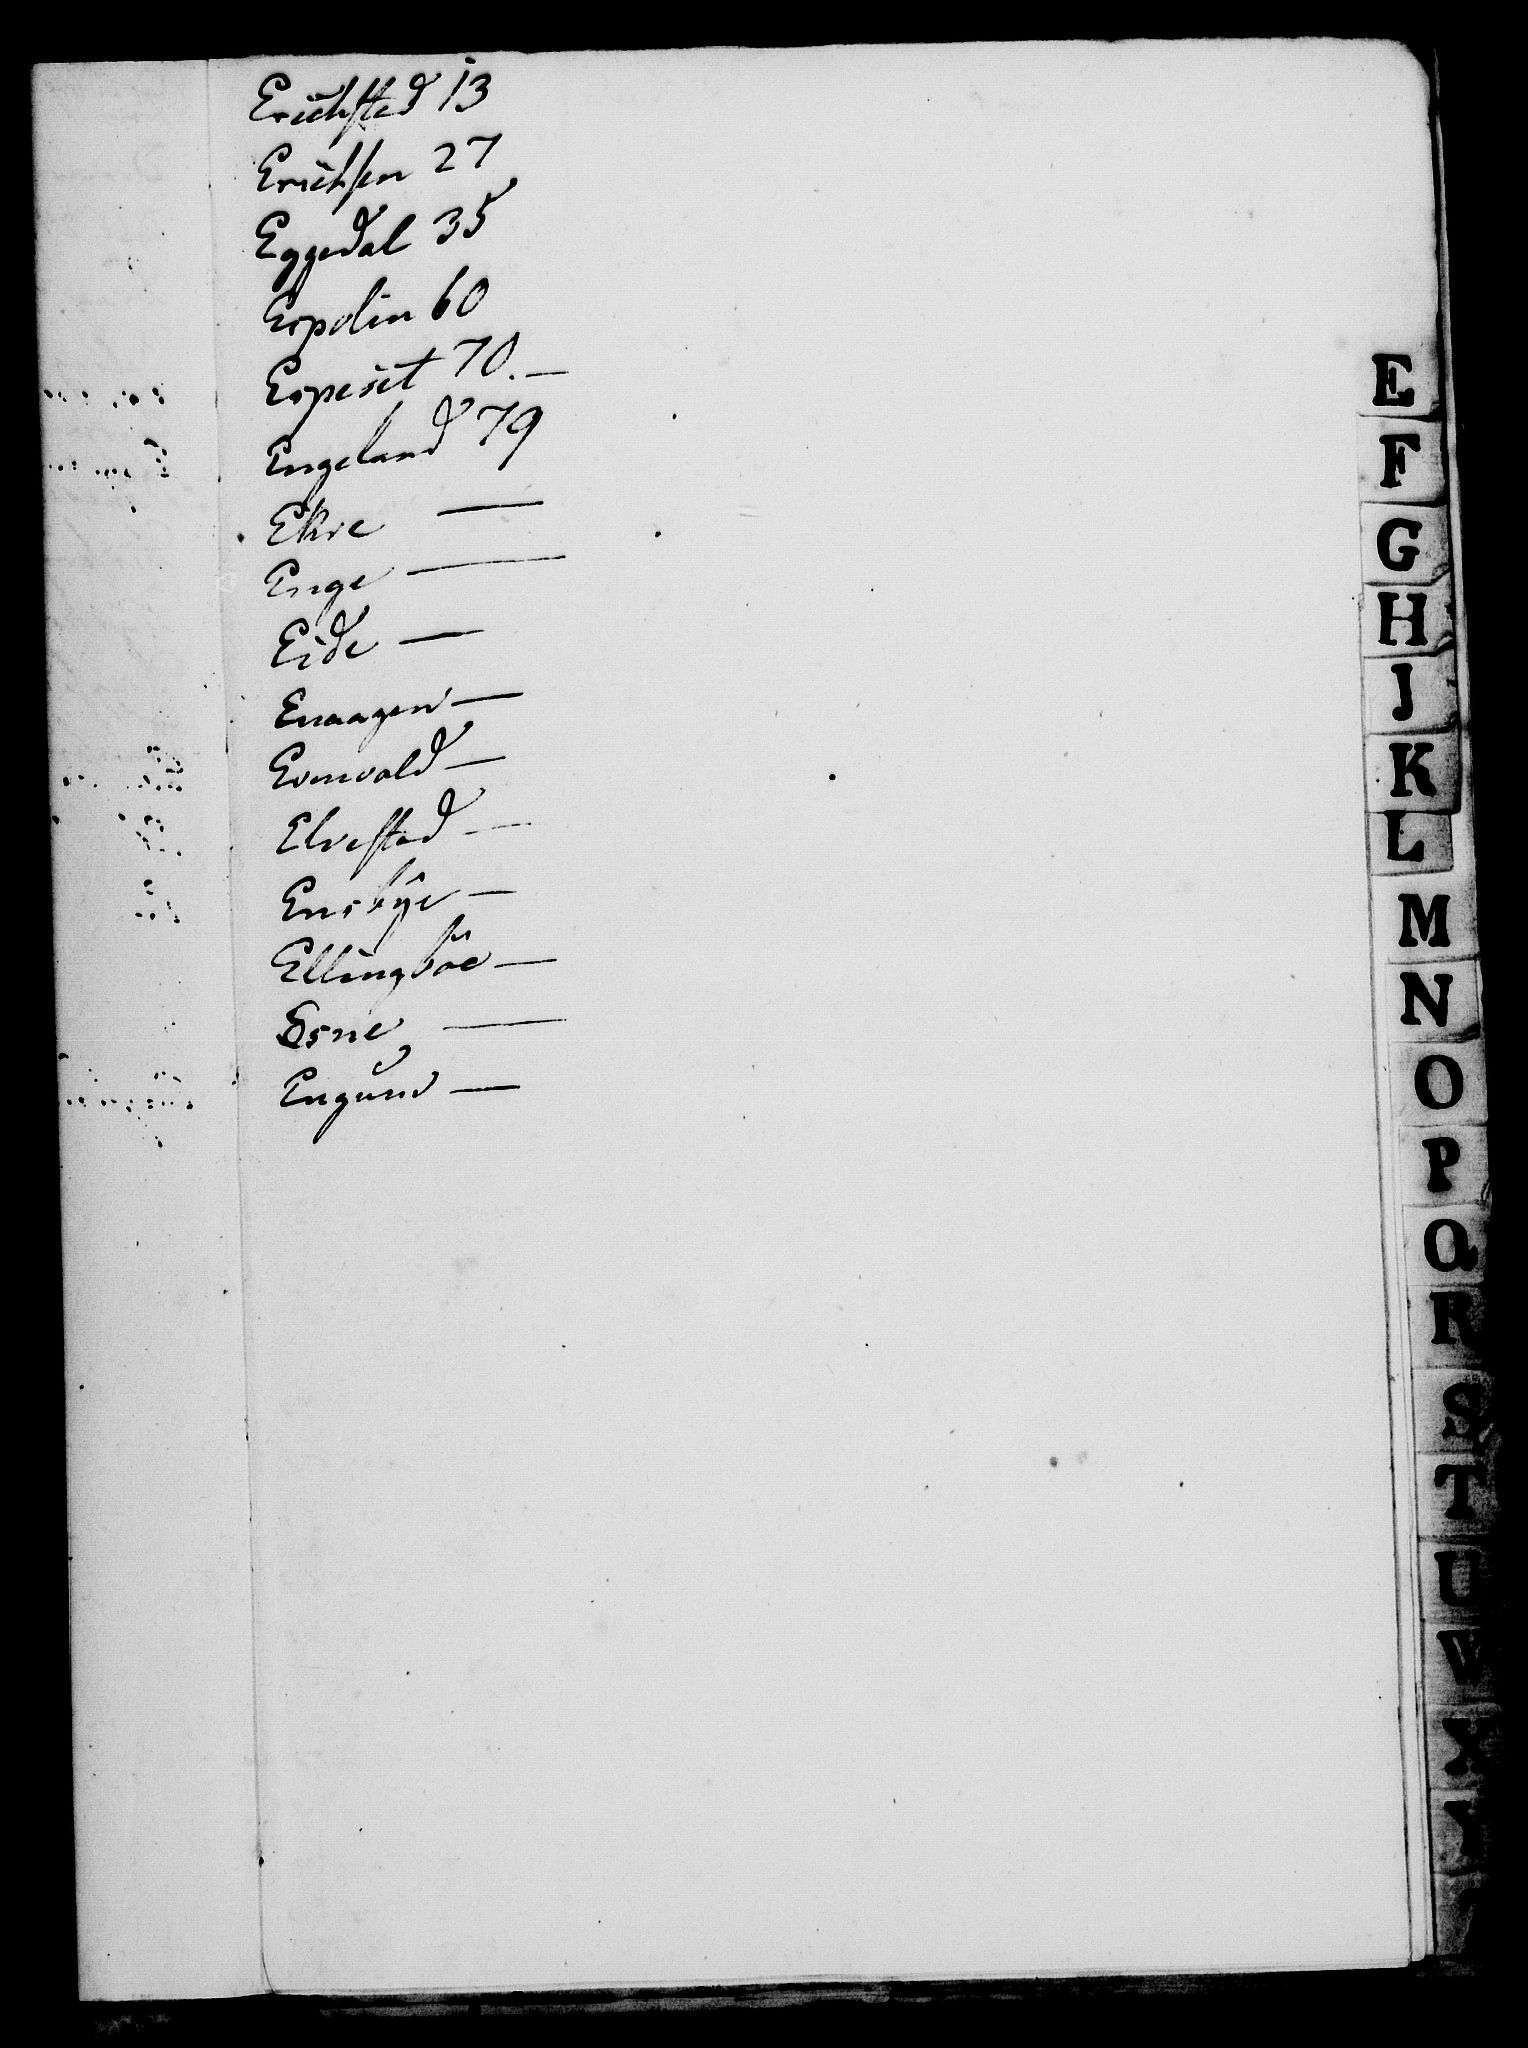 Erichsted 13
Erichsen 27
Eggedal 35
Espolin 60
Espeset 70. —
Engeland 79
Ekre —
Enge —
Eide —
Enaagen —
Evenvold —
Elvestad —
Ensbÿe —
Ellingböe —
Esne —
Engund —
E
F
G
H
J
K
L
M
N
O
P
Q
R
S
T
U
V
X
Y